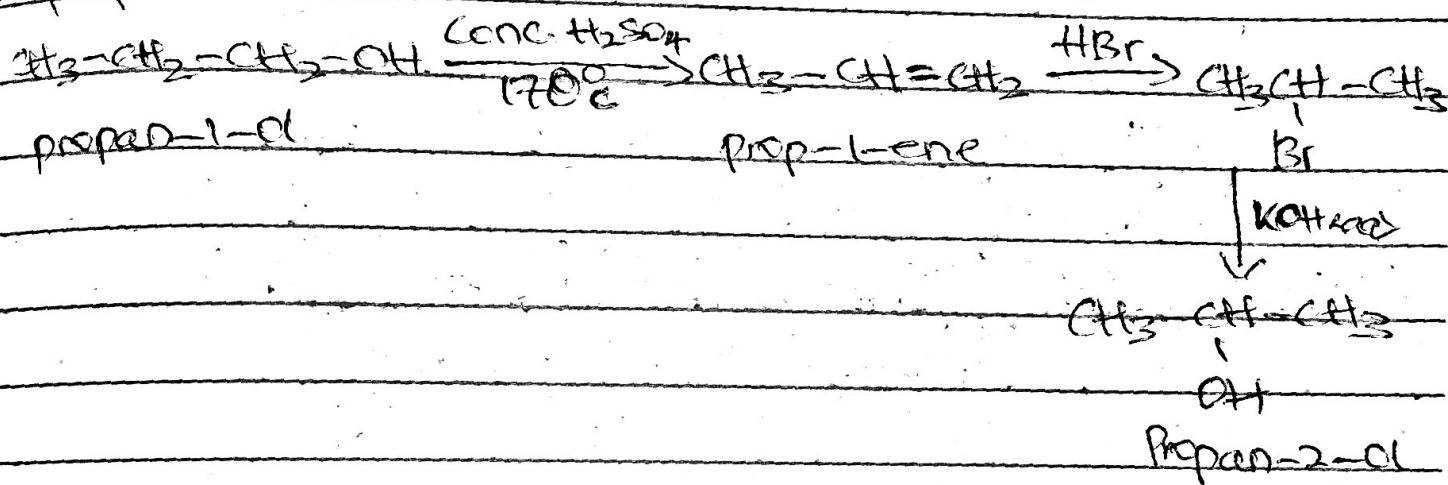 CH3-CH2-CH2-OH conc. H2SO4 170°C → CH3-CH=CH2 HBr → CH3CH-CH3
propan-1-ol prop-1-ene Br
KOH(aq)
CH3-CH-CH3
OH
Propan-2-ol